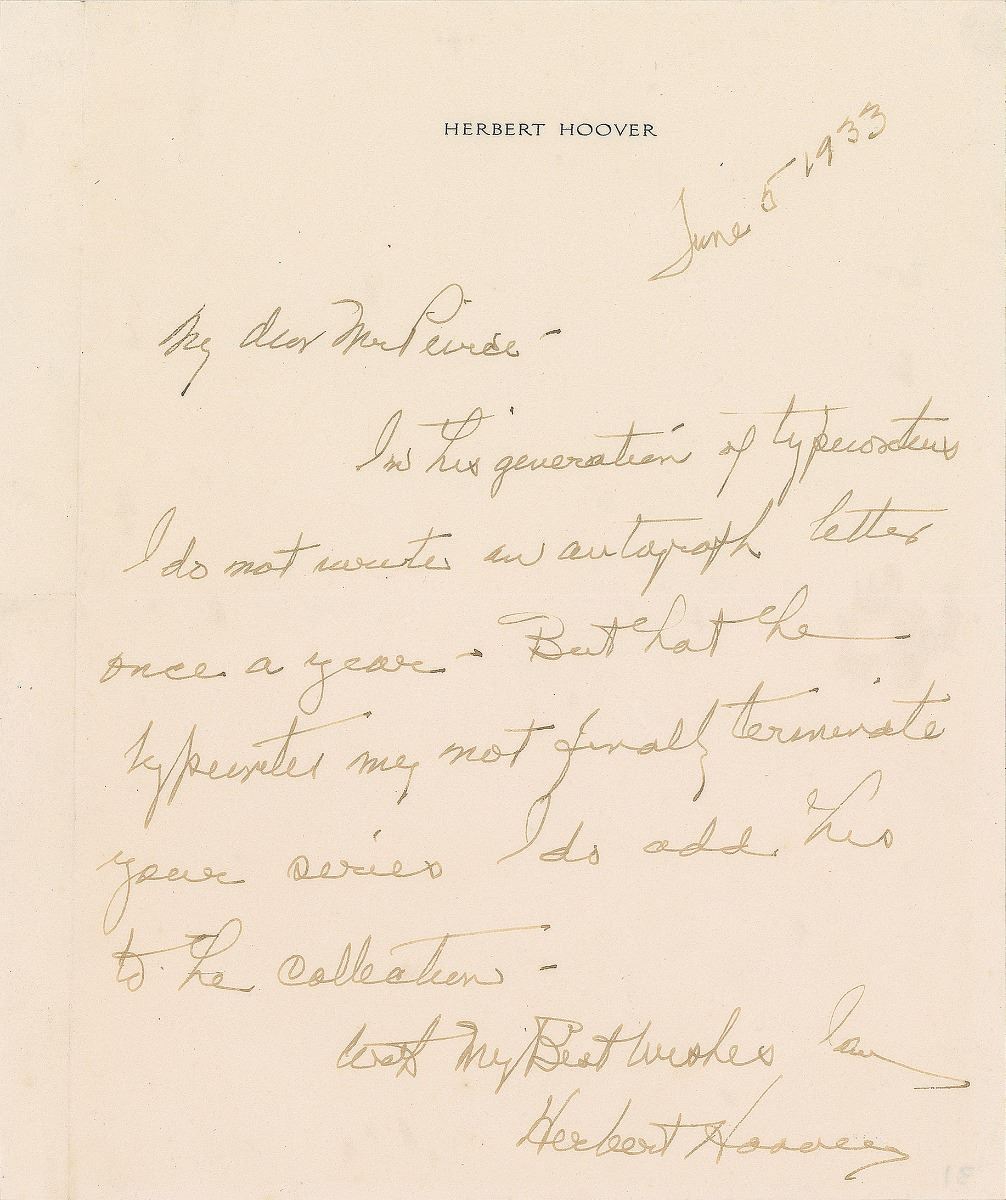 HERBERT HOOVER
June 5 1933
My dear Mr Peirce -
In this generation of typewriters
I do not write an autograph letter
once a year - But that the
typewriter may not finally terminate
your series I do add this
to the collection -
With My Best Wishes I am
Herbert Hoover
31